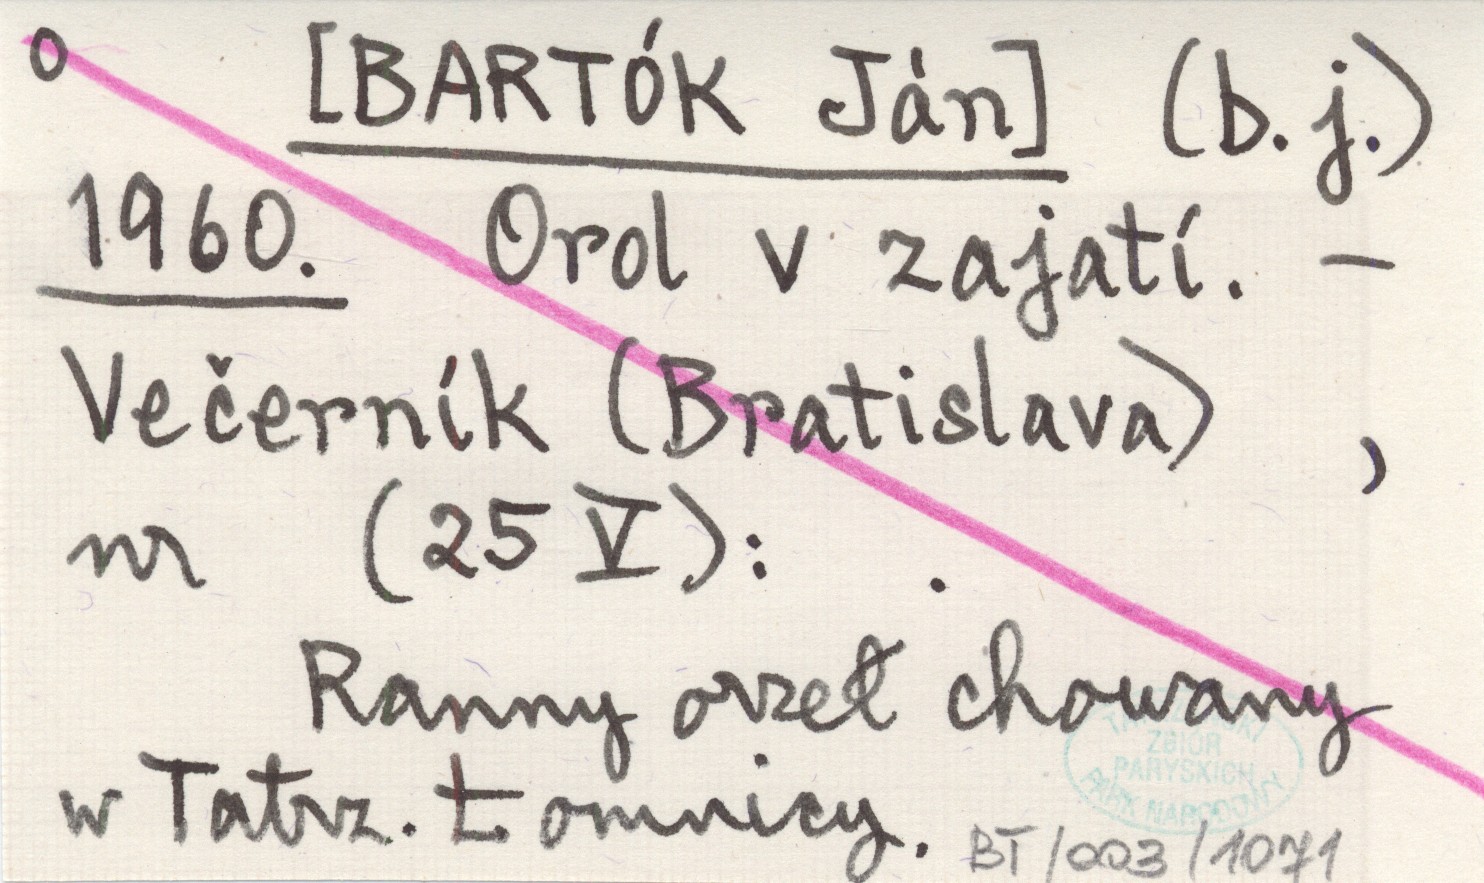 o [BARTÓK Ján] (b.j.)
1960. Orol v zajatí. –
Večerník (Bratislava) ,
nr (25 V): .
Ranny orzeł chowany
w Tatrz. Łomnicy.
TATRZAŃSKI
ZBIÓR
PARYSKICH
PARK NARODOWY
BT/003/1071